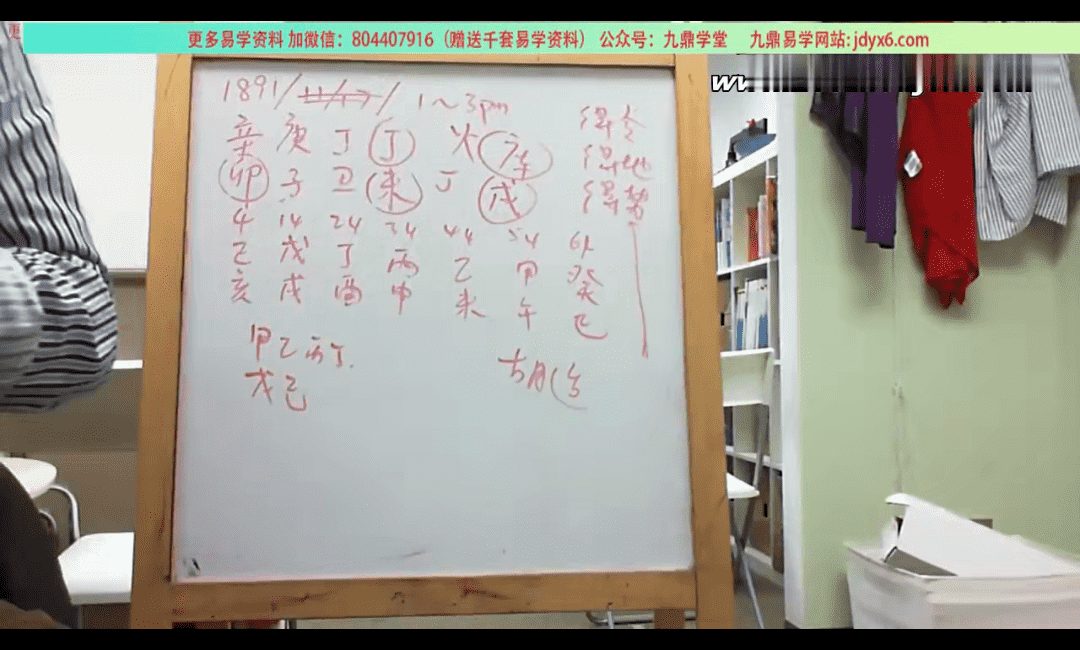 更多易学资料 加微信：804407916（赠送千套易学资料） 公众号：九鼎学堂 九鼎易学网站:jdyx6.com
更
1891/ / 1~3pm
辛 庚 丁 丁 火 得令
卯 子 丑 未 丁 戌 得地
得势
4 14 24 34 44 54 64
己 戊 丁 丙 乙 甲 癸
亥 戌 酉 申 未 午 巳
甲乙丙丁.
戊己
胡适